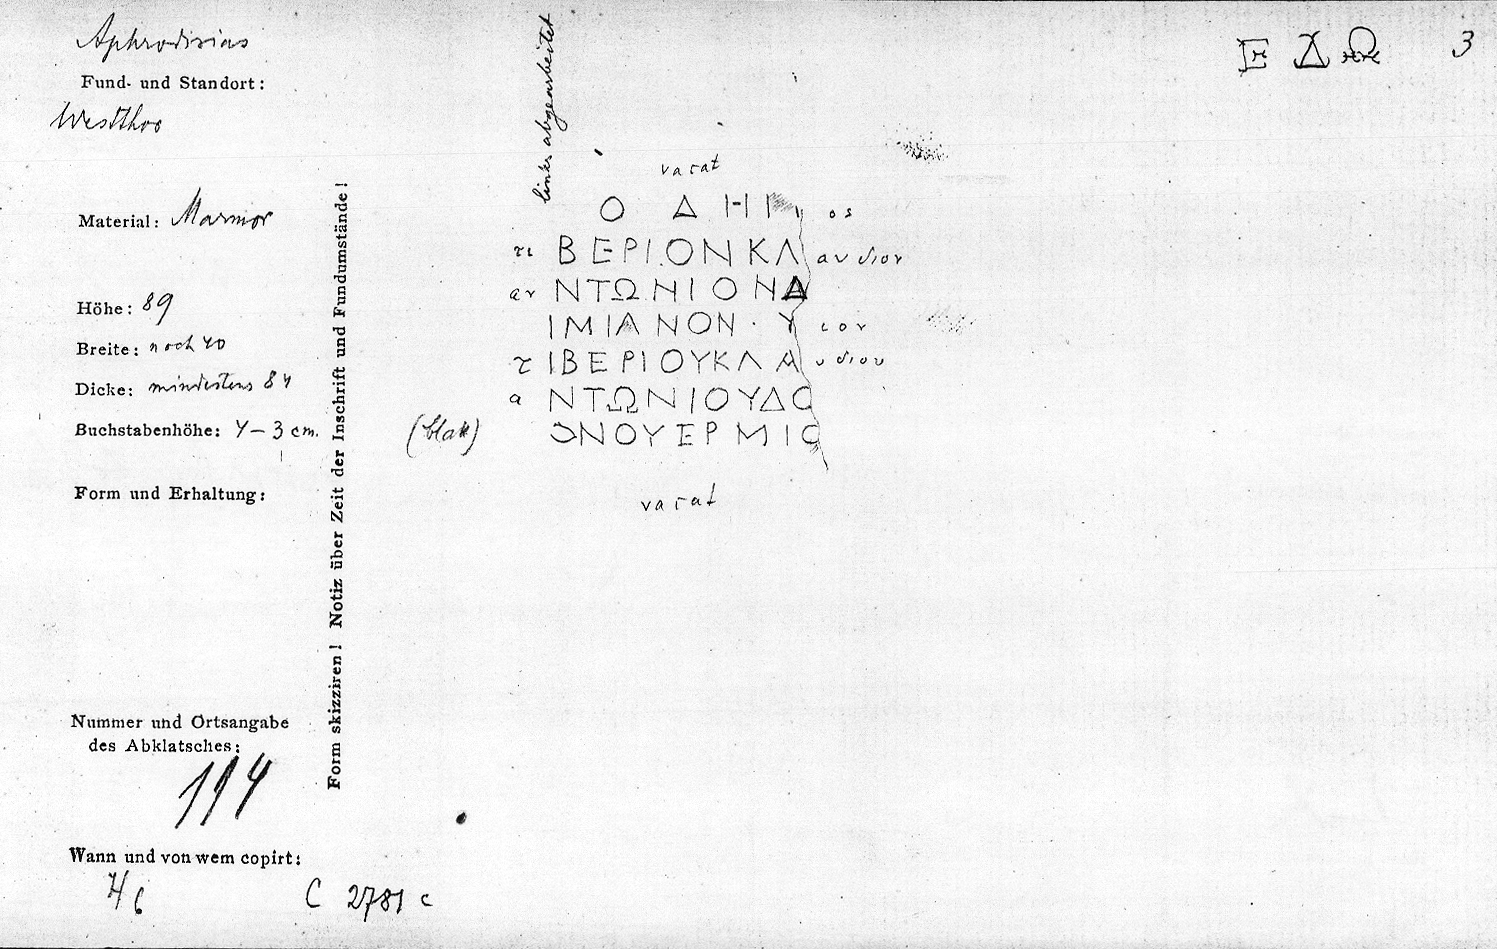 Aphrodisias
Fund- und Standort:
Westthor
Material: Marmor
Höhe: 89
Breite: noch 40
Dicke: mindestens 84
Buchstabenhöhe: 4–3 cm.
Form und Erhaltung:
Nummer und Ortsangabe
des Abklatsches:
114
Wann und von wem copirt:
C 2781 c
Form skizziren! Notiz über Zeit der Inschrift und Fundumstände!
links abgearbeitet
Ξ Δ Ω 3
vacat
Ο ΔΗΜ ος
τι ΒΕΡΙΟΝΚΛ αυδιον
αν ΝΤΩΝΙΟΝΔ
ΙΜΙΑΝΟΝ · Υ ιον
τ ΙΒΕΡΙΟΥΚΛΑ υδιου
α ΝΤΩΝΙΟΥΔΟ
(blatt) ΟΝΟΥΕΡΜΙΟ
vacat